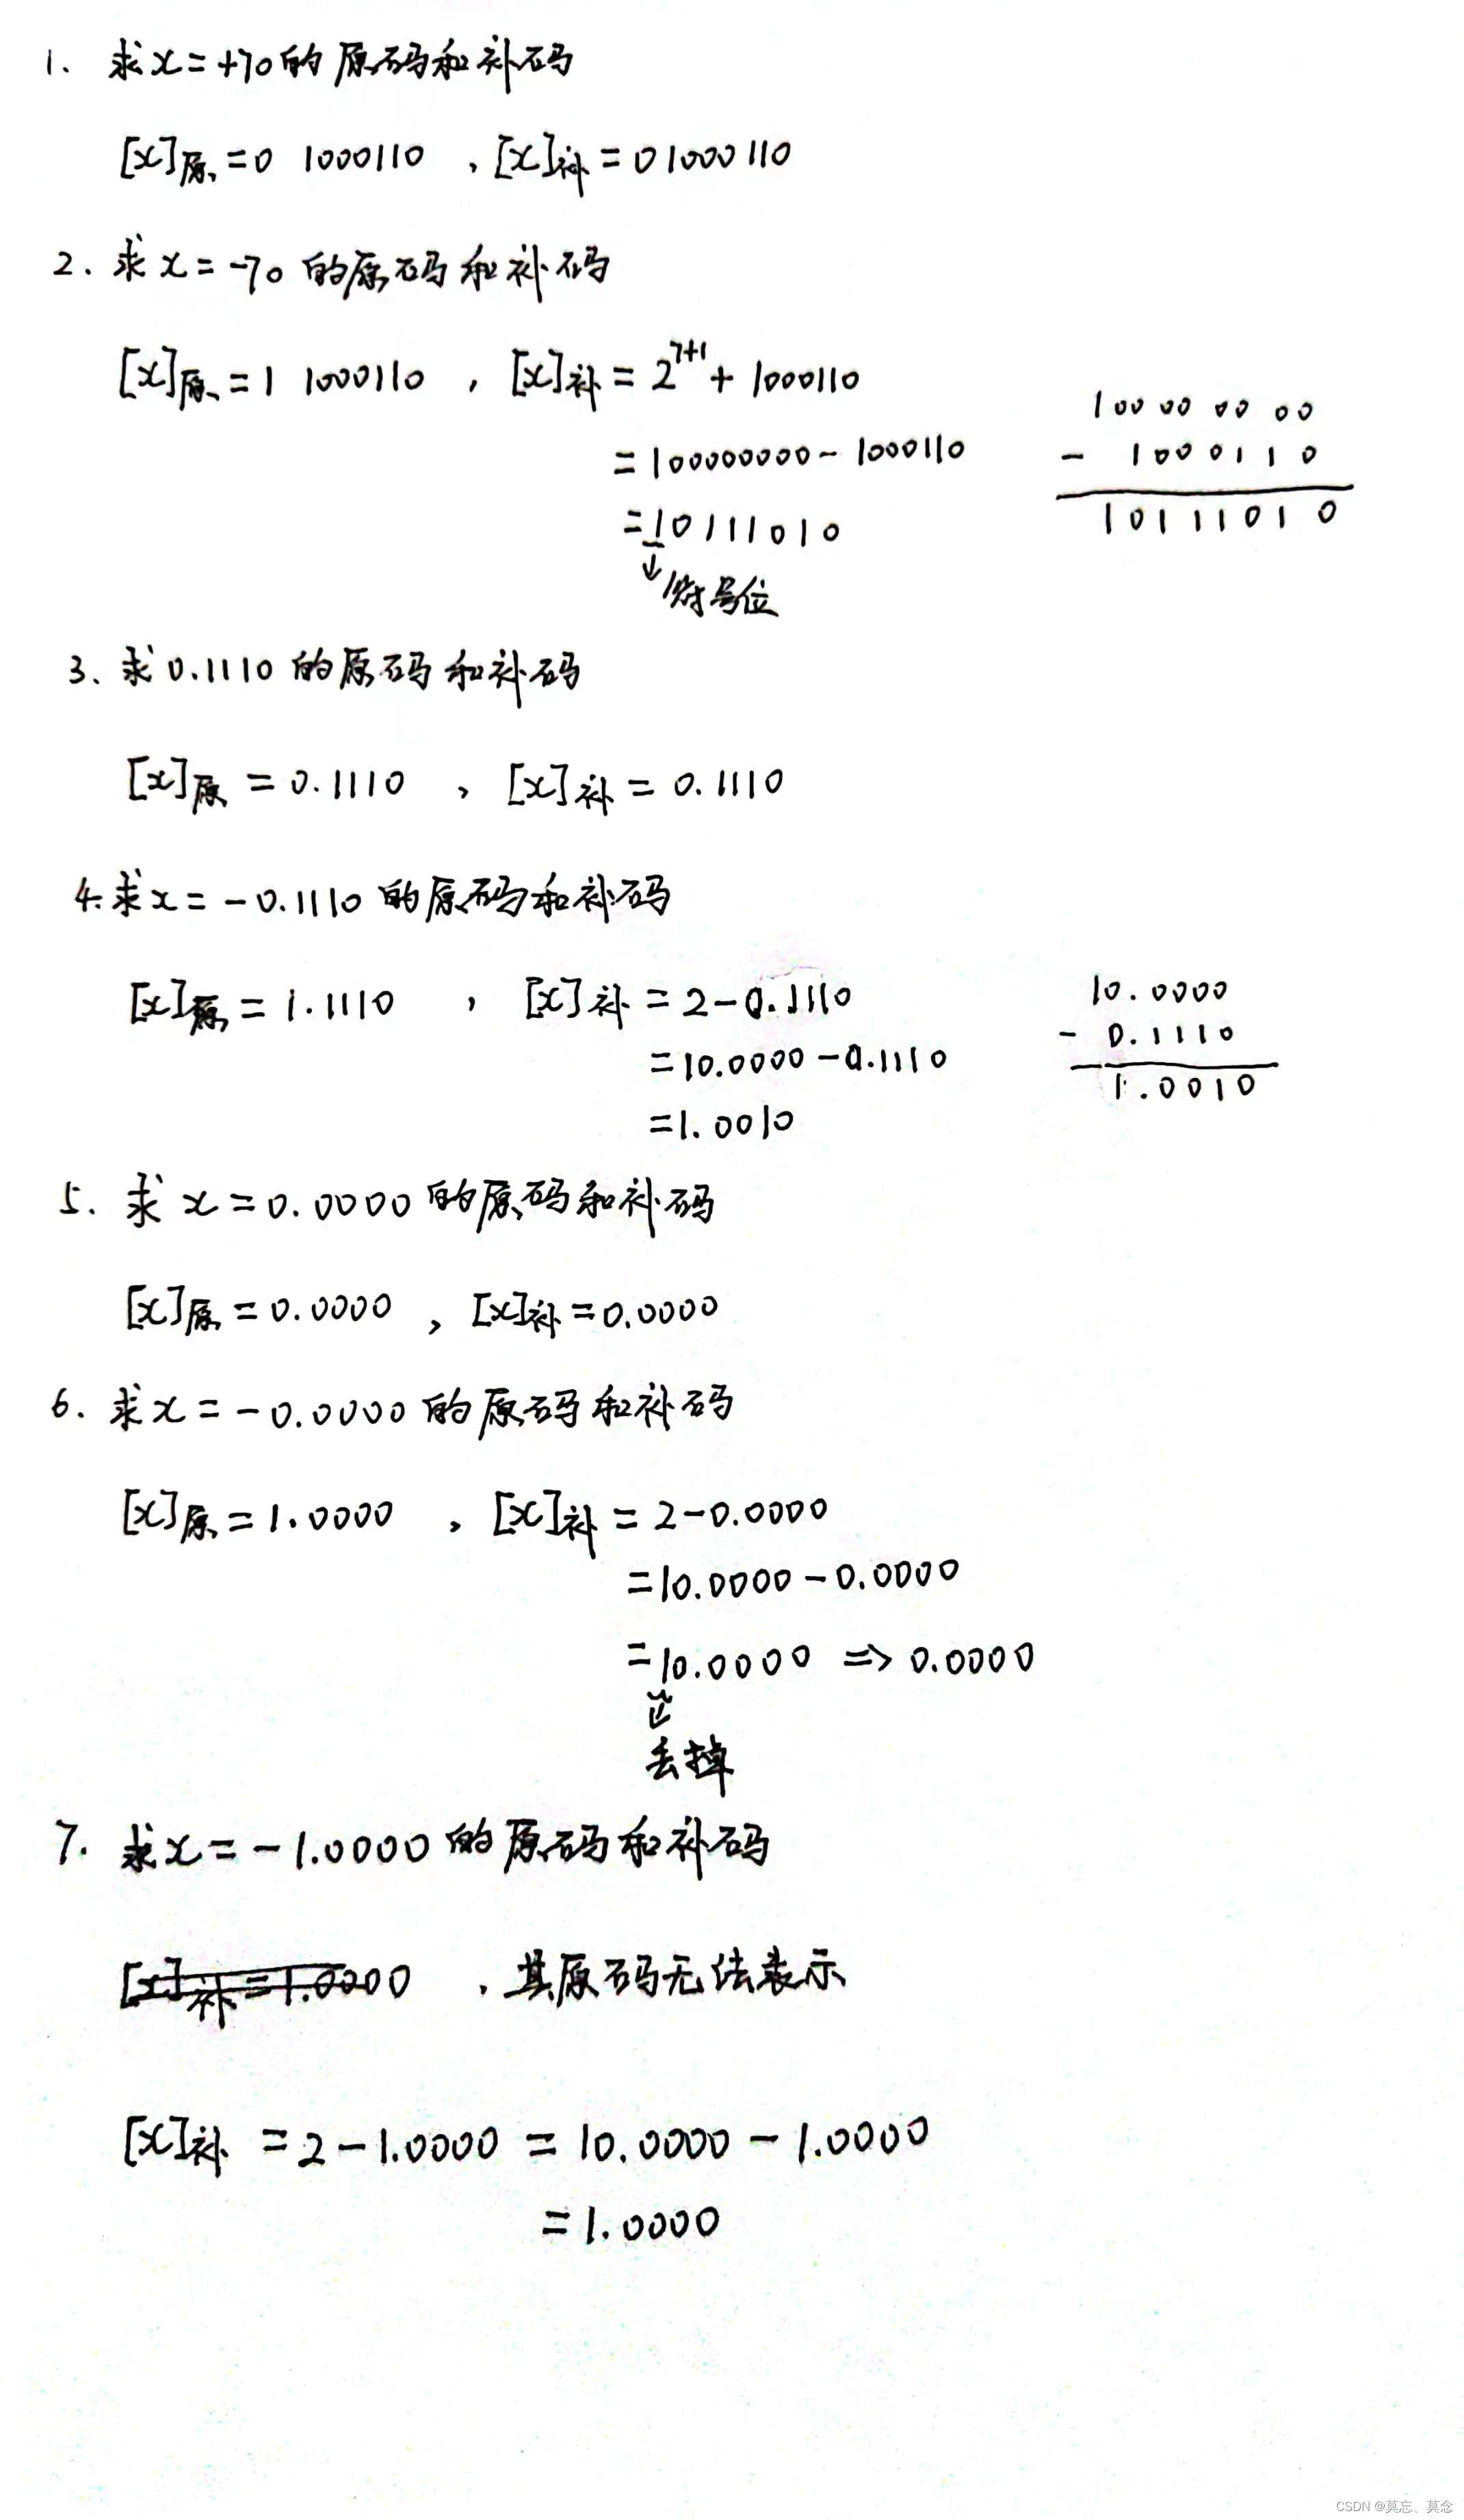 1. 求x=+70的原码和补码
[x]原=0 1000110 ,[x]补=01000110
2. 求x=-70的原码和补码
[x]原=1 1000110 , [x]补=2^{7+1}+1000110
=100000000-1000110
=10111010
↓符号位
100000000
- 1000110
10111010
3. 求0.1110的原码和补码
[x]原=0.1110 , [x]补=0.1110
4. 求x=-0.1110的原码和补码
[x]原=1.1110 , [x]补=2-0.1110
=10.0000-0.1110
=1.0010
10.0000
- 0.1110
1.0010
5. 求x=0.0000的原码和补码
[x]原=0.0000 , [x]补=0.0000
6. 求x=-0.0000的原码和补码
[x]原=1.0000 , [x]补=2-0.0000
=10.0000-0.0000
=10.0000 => 0.0000
↓
丢掉
7. 求x=-1.0000的原码和补码
[x]补=1.0000 ,其原码无法表示
[x]补=2-1.0000=10.0000-1.0000
=1.0000
CSDN @莫忘、莫念